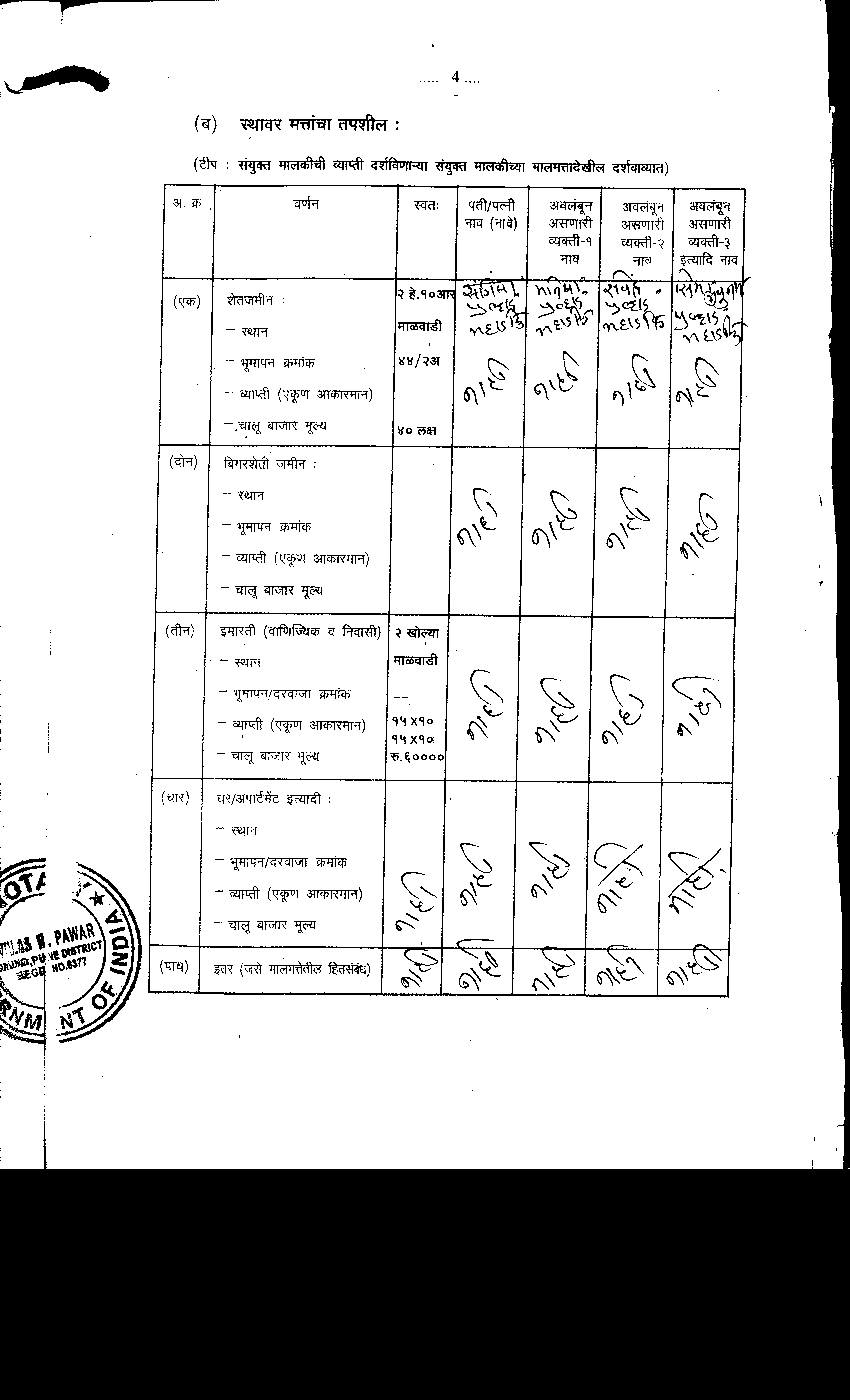 ..... 4 ....
(ब) स्थावर मत्तांचा तपशील :
(टीप : संयुक्त मालकीची व्याप्ती दर्शविणाऱ्या संयुक्त मालकीच्या मालमत्तादेखील दर्शवाव्यात)
अ. क्र वर्णन स्वतः पती/पत्नी नाव (नावे) अवलंबून असणारी व्यक्ती-१ नाव अवलंबून असणारी व्यक्ती-२ नाव अवलंबून असणारी व्यक्ती-३ इत्यादि नाव
(एक) शेतजमीन : २ हे.१०आर
– स्थान माळवाडी
– भूमापन क्रमांक ४४/२अ नाही नाही नाही नाही
– व्याप्ती (एकूण आकारमान)
– चालू बाजार मूल्य ४० लक्ष
(दोन) बिगरशेती जमीन :
– स्थान
– भूमापन क्रमांक नाही नाही नाही नाही
– व्याप्ती (एकूण आकारमान)
– चालू बाजार मूल्य
(तीन) इमारती (वाणिज्यिक व निवासी) २ खोल्या
– स्थान माळवाडी
– भूमापन/दरवाजा क्रमांक -- नाही नाही नाही नाही
– व्याप्ती (एकूण आकारमान) १५X१०
१५X१०
– चालू बाजार मूल्य रु.६००००
(चार) घर/अपार्टमेंट इत्यादी :
– स्थान
– भूमापन/दरवाजा क्रमांक
– व्याप्ती (एकूण आकारमान) नाही नाही नाही नाही नाही
– चालू बाजार मूल्य
(पाच) इतर (जसे मालमत्तेतील हितसंबंध) नाही नाही नाही नाही नाही
PAWAR
DISTRICT
NO.6377
GOVERNMENT OF INDIA